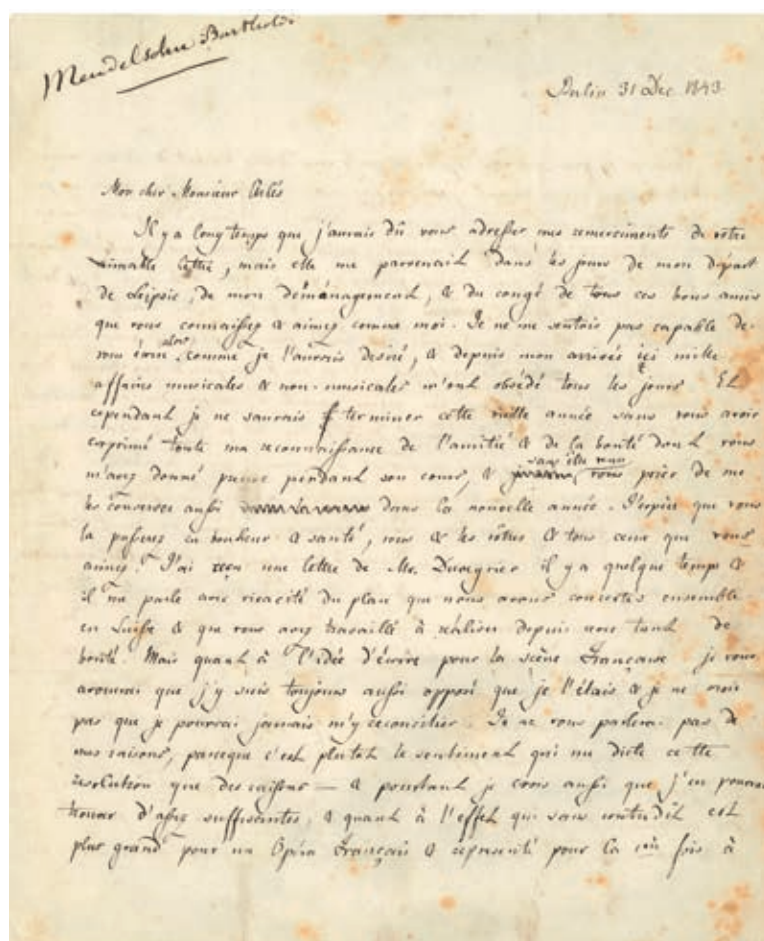 Mendelsohn Bartholdi
Berlin 31 Dec 1843
Mon cher Monsieur
Il y a long temps que j'aurais dû vous adresser mes remerciments de votre
aimable lettre, mais elle me parvenait dans les jours de mon départ
de Leipsic, de mon déménagement, & du congé de tous ces bons amis
que vous connaissez & aimez comme moi. Je ne me sentois pas capable de
vous écrire alors, comme je l'aurais desiré, & depuis mon arrivée ici mille
affaires musicales & non-musicales m'ont obsédé tous les jours. Et
cependant je ne saurais terminer cette vieille année sans vous avoir
exprimé toute ma reconnaissance de l'amitié & de la bonté dont vous
m'avez donné preuve pendant son cours, & sans vous prier de me
les conserver aussi dans la nouvelle année. J'espère que vous
la passerez en bonheur & santé, vous & les vôtres & tous ceux que vous
aimez. J'ai reçu une lettre de Mr. Duveyrier il y a quelque temps &
il me parle avec vivacité du plan que nous avons concertés ensemble
en Suisse & que vous avez travaillé à réaliser depuis avec tant de
bonté. Mais quant à l'idée d'écrire pour la scène Française je vous
avouerai que j'y suis toujours aussi opposé que je l'étais & je ne crois
pas que je pourrai jamais m'y reconcilier. Je ne vous parlerai pas de
mes raisons, parceque c'est plutôt le sentiment qui me dicte cette
resolution que des raisons — & pourtant je crois aussi que j'en pourrais
trouver d'assez suffisantes, & quant à l'effet qui sans contredit est
plus grand pour un Opéra Français & représenté pour la fois à